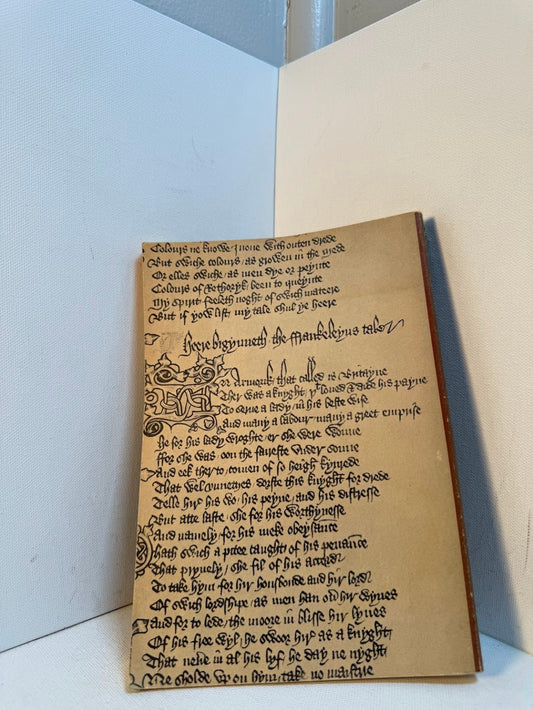 Colours ne knowe I none with outen drede
But swiche colours as growen in the mede
Or elles swiche as men dye or peynte
Colours of Rethoryk been to queynte
My spirit feeleth noght of swich mateere
But if yow list my tale shul ye heere
Heere bigynneth the Frankeleyns tale
In Armorik that called is Britayne
Ther was a knyght þt loued & dide his payne
To serue a lady in his beste wise
And many a labour many a greet emprise
He for his lady wroghte er she were wonne
ffor she was oon the faireste vnder sonne
And eek ther to comen of so heigh kynrede
That wel vnnethes dorste this knyght for drede
Telle hire his wo his peyne and his distresse
But atte laste she for his worthynesse
And namely for his meke obeysance
Hath swich a pitee caught of his penance
That pryuely she fil of his accord
To take hym for hir housbonde and hir lord
Of swich lordshipe as men han ouer hir wyues
And for to lede the moore in blisse hir lyues
Of his free wyl he swoor hire as a knyght
That neuere in al his lyf he day ne nyght
Ne sholde vp on hym take no maistrie